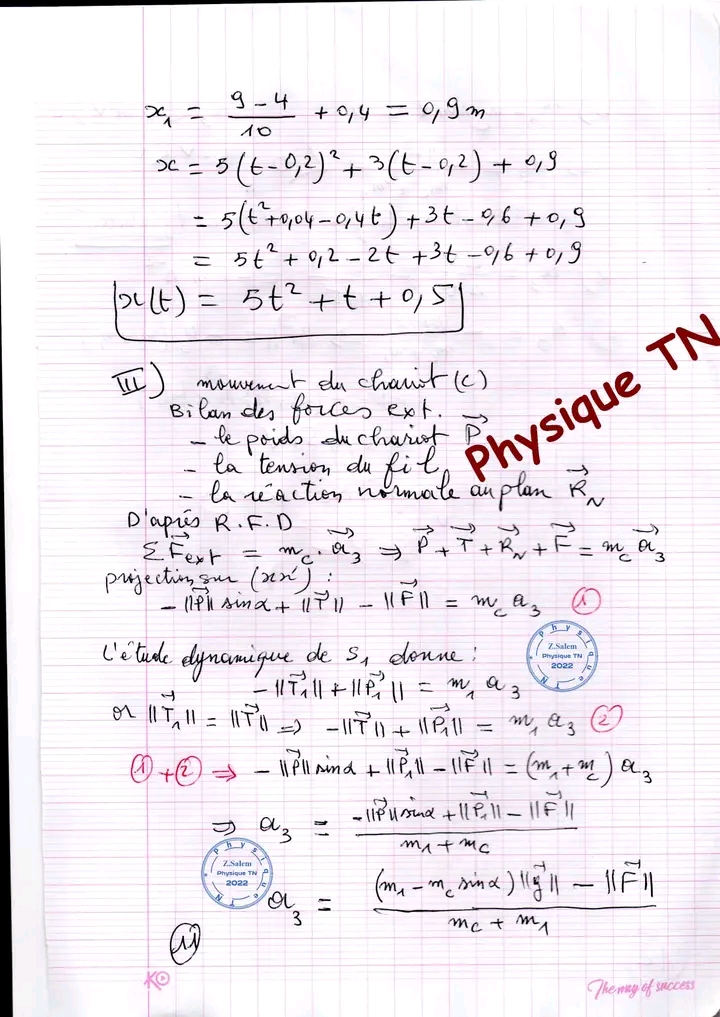 x₁ = (9 - 4)/10 + 0,4 = 0,9 m
x = 5(t - 0,2)² + 3(t - 0,2) + 0,9
= 5(t² + 0,04 - 0,4t) + 3t - 0,6 + 0,9
= 5t² + 0,2 - 2t + 3t - 0,6 + 0,9
x(t) = 5t² + t + 0,5
Physique TN
III) mouvement du chariot (C)
Bilan des forces ext.
- le poids du chariot P⃗
- la tension du fil
- la réaction normale au plan R⃗_N
D'après R.F.D
ΣF⃗ext = m_c.a⃗₃ ⇒ P⃗ + T⃗ + R⃗_N + F⃗ = m_c a⃗₃
projection sur (xx') :
- ||P⃗|| sinα + ||T⃗|| - ||F⃗|| = m_c a₃ ①
L'étude dynamique de S₁ donne :
- ||T⃗₁|| + ||P⃗₁|| = m₁ a₃
or ||T⃗₁|| = ||T⃗|| ⇒ - ||T⃗|| + ||P⃗₁|| = m₁ a₃ ②
① + ② ⇒ - ||P⃗|| sinα + ||P⃗₁|| - ||F⃗|| = (m₁ + m_c) a₃
⇒ a₃ = (-||P⃗|| sinα + ||P⃗₁|| - ||F⃗||)/(m₁ + m_c)
a₃ = ((m₁ - m_c sinα) ||g⃗|| - ||F⃗||)/(m_c + m₁)
Physique TN
Z.Salem
Physique TN
2022
Physique TN
Z.Salem
Physique TN
2022
11
KO
The way of success